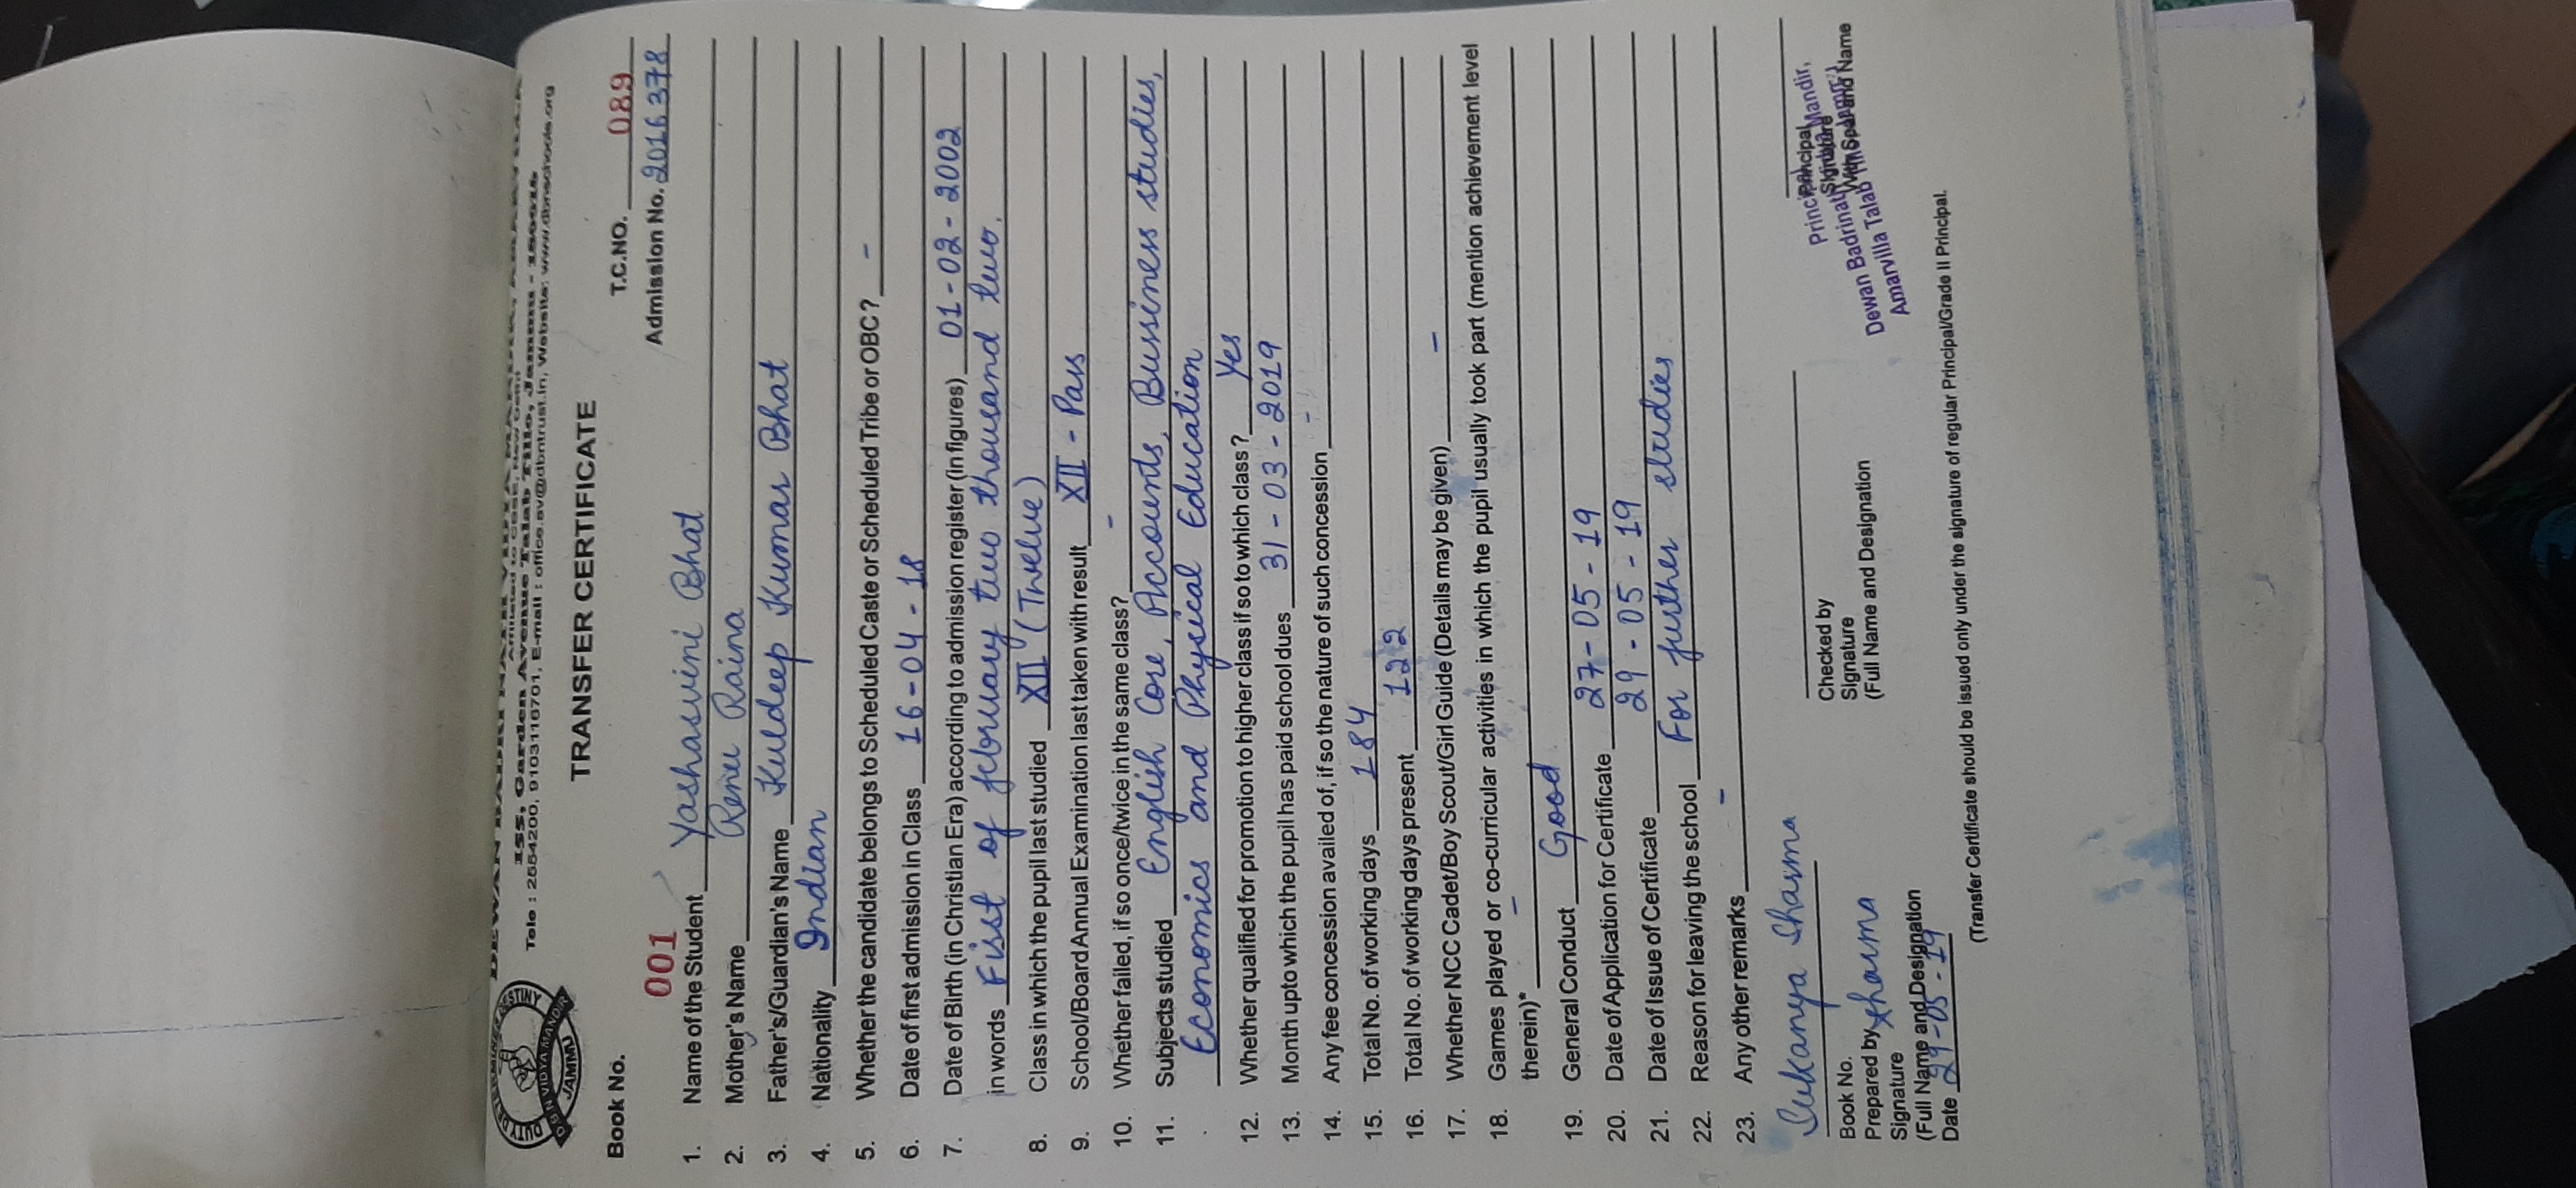 DUTY DETERMINES DESTINY
D.B.N VIDYA MANDIR
JAMMU
DEWAN BADRI NATH VIDYA MANDIR,
Iss, Garden Avenue Talab Tillo, Jammu - 180018
Tele : 2554200, 9103116701, E-mail : office.avv@dbntrust.in, Website: www.dbnschools.org
TRANSFER CERTIFICATE
Book No. T.C.NO. 089
0001 Admission No. 2016378
1. Name of the Student Yashasvini Bhat
2. Mother's Name Renu Raina
3. Father's/Guardian's Name Kuldeep Kumar Bhat
4. Nationality Indian
5. Whether the candidate belongs to Scheduled Caste or Scheduled Tribe or OBC? -
6. Date of first admission in Class 16-04-18
7. Date of Birth (in Christian Era) according to admission register (in figures) 01-02-2002
in words First of february two thousand two.
8. Class in which the pupil last studied XII (Twelve)
9. School/Board Annual Examination last taken with result XII - Pass
10. Whether failed, if so once/twice in the same class? -
11. Subjects studied English Core, Accounts, Bussiness studies,
Economics and Physical Education
12. Whether qualified for promotion to higher class if so to which class? Yes
13. Month upto which the pupil has paid school dues 31-03-2019
14. Any fee concession availed of, if so the nature of such concession -
15. Total No. of working days 184
16. Total No. of working days present 122
17. Whether NCC Cadet/Boy Scout/Girl Guide (Details may be given) -
18. Games played or co-curricular activities in which the pupil usually took part (mention achievement level
therein)* -
19. General Conduct Good
20. Date of Application for Certificate 27-05-19
21. Date of Issue of Certificate 29-05-19
22. Reason for leaving the school For further studies
23. Any other remarks -
Sukanya Sharma
Book No. Checked by Principal
Prepared by Sharma Signature Signature
Signature (Full Name and Designation) With Seal and Name
(Full Name and Designation
Date 29-05-19
Principal,
Dewan Badrinath Vidya Mandir,
Amarvilla Talab Tillo Jammu
(Transfer Certificate should be issued only under the signature of regular Principal/Grade II Principal.